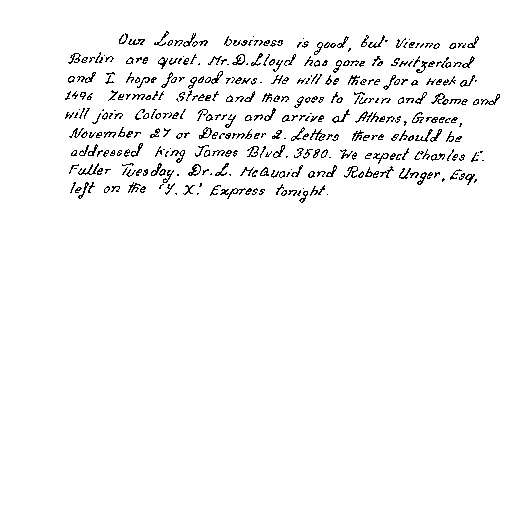 Our London business is good, but Vienna and
Berlin are quiet. Mr. D. Lloyd has gone to Switzerland
and I hope for good news. He will be there for a week at
1496 Zermott Street and then goes to Turin and Rome and
will join Colonel Parry and arrive at Athens, Greece,
November 27 or December 2. Letters there should be
addressed King James Blvd. 3580. We expect Charles E.
Fuller Tuesday. Dr. L. McQuaid and Robert Unger, Esq,
left on the "Y. X." Express tonight.